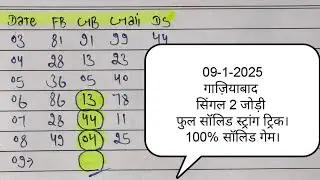 Date FB GB Gali DS
03 81 91 99 44
04 28 13 23
05 36 05 40
06 86 13 78
07 28 44 11
08 49 04 25
09→
09-1-2025
गाज़ियाबाद
सिंगल 2 जोड़ी
फुल सॉलिड स्ट्रांग ट्रिक।
100% सॉलिड गेम।